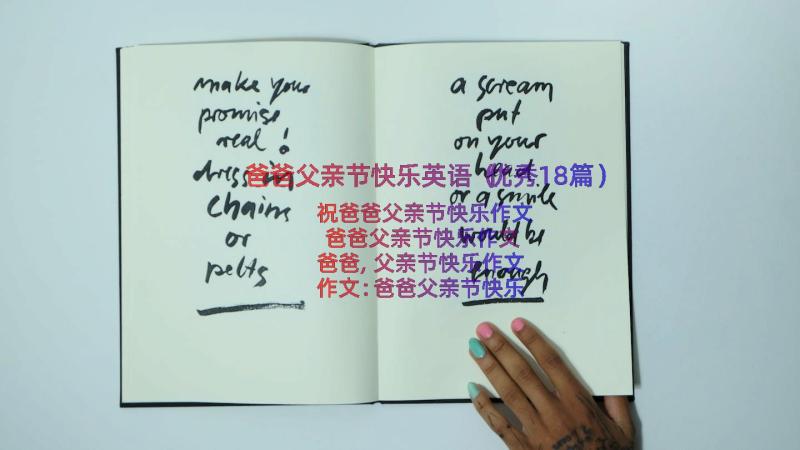 make your
promise
real!
dress in
chains
or
pelts
a scream
put
on your
head
or a smile
would be
enough
爸爸父亲节快乐英语（优秀18篇）
祝爸爸父亲节快乐作文
爸爸父亲节快乐作文
爸爸,父亲节快乐作文
作文:爸爸父亲节快乐